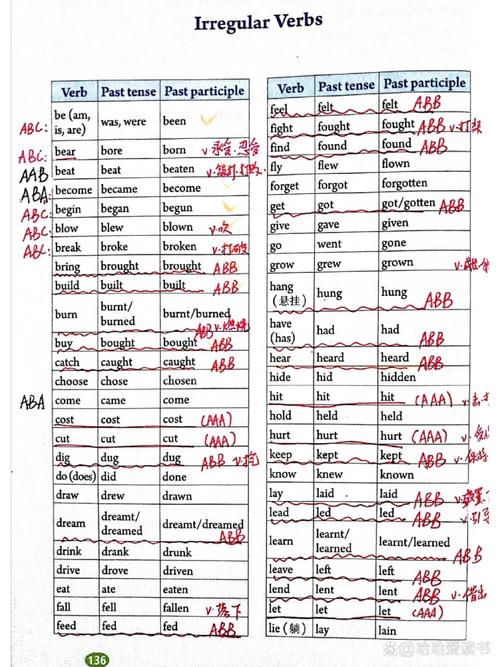 Irregular Verbs
Verb Past tense Past participle
ABC: be (am, is, are) was, were been
ABC: bear bore born v. 承受.忍受
AAB beat beat beaten
ABA become became become
ABC: begin began begun
ABC: blow blew blown v.吹
ABC: break broke broken v.打破
bring brought brought ABB
build built built ABB
burn burnt/burned burnt/burned ABB v.燃烧
buy bought bought ABB
catch caught caught ABB
choose chose chosen
ABA come came come
cost cost cost (AAA)
cut cut cut (AAA)
dig dug dug ABB v.挖
do (does) did done
draw drew drawn
dream dreamt/dreamed dreamt/dreamed ABB
drink drank drunk
drive drove driven
eat ate eaten
fall fell fallen v.落下
feed fed fed ABB
Verb Past tense Past participle
feel felt felt ABB
fight fought fought ABB v.打架
find found found ABB
fly flew flown
forget forgot forgotten
get got got/gotten ABB
give gave given
go went gone
grow grew grown
hang (悬挂) hung hung ABB
have (has) had had ABB
hear heard heard ABB
hide hid hidden
hit hit hit (AAA)
hold held held
hurt hurt hurt (AAA)
keep kept kept ABB v.保持
know knew known
lay laid laid ABB
lead led led ABB
learn learnt/learned learnt/learned ABB
leave left left ABB
lend lent lent ABB v.借出
let let let (AAA)
lie (躺) lay lain
136
哈哈爱读书